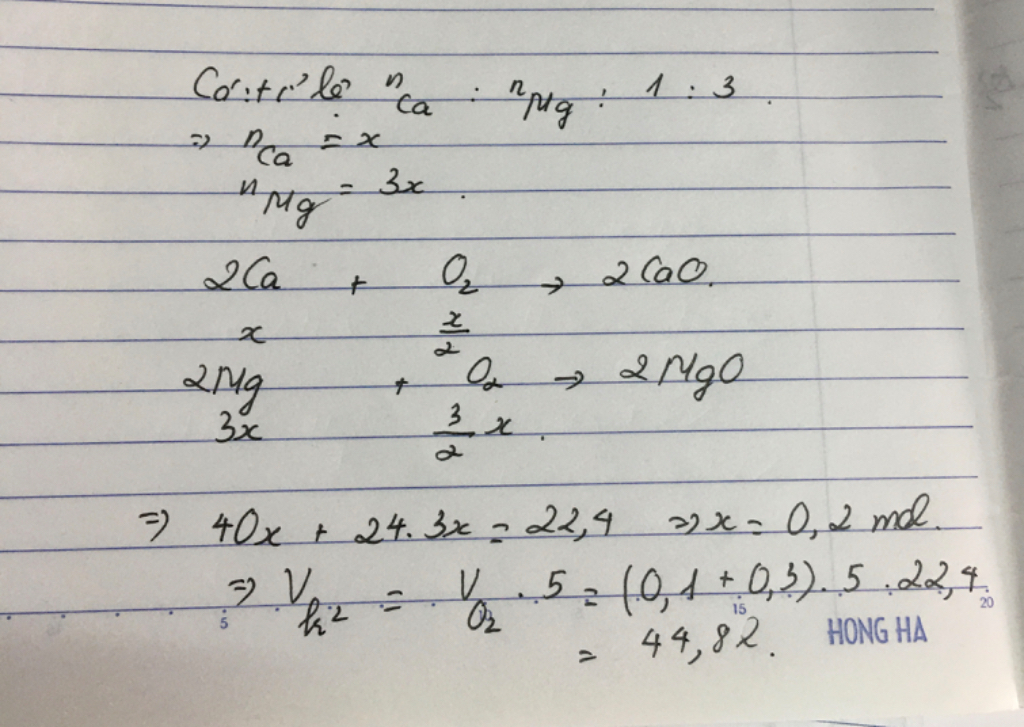 Có: tỉ lệ nCa : nMg : 1 : 3.
=> nCa = x
nMg = 3x.
2Ca + O2 → 2CaO.
x x/2
2Mg + O2 → 2MgO
3x 3/2 x.
=> 40x + 24.3x = 22,4 => x = 0,2 mol.
=> Vk2 = VO2 . 5 = (0,1 + 0,3). 5 . 22,4
5 15 20
= 44,82.
HONG HA